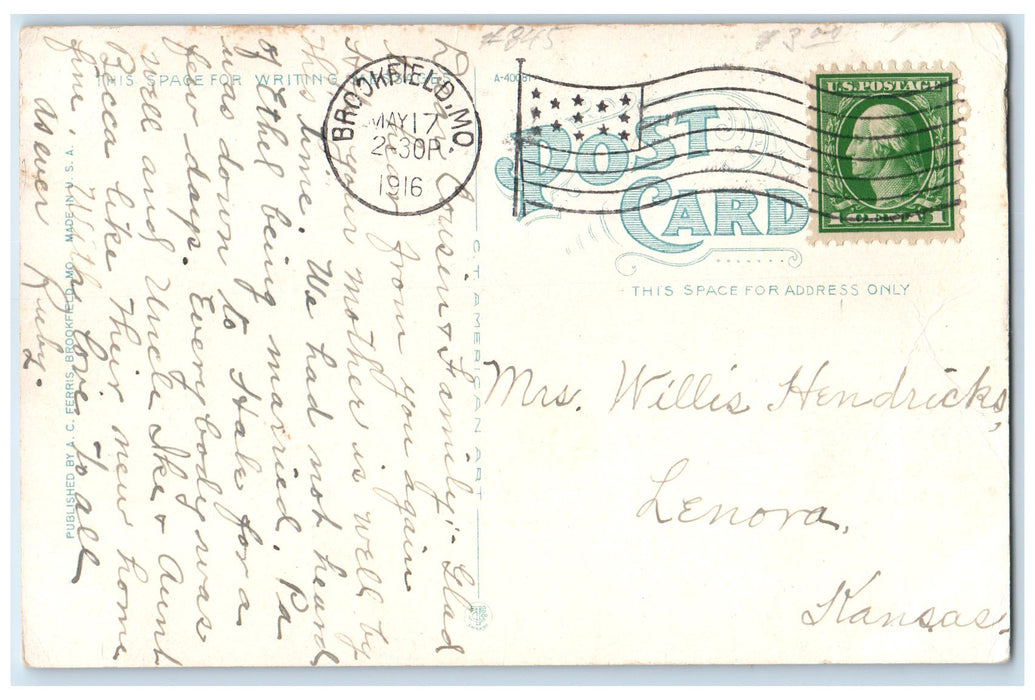 #845
$3.00
THIS SPACE FOR WRITING MESSAGES
A-40081
BROOKFIELD, MO.
MAY 17
2-30P.
1916
U.S. POSTAGE
1 CENT 1
POST
CARD
THIS SPACE FOR ADDRESS ONLY
Mrs. Willis Hendricks,
Lenora,
Kansas.
Dear Cousin & Family:- Glad
to hear from you again
Hope your mother is well by
this time. We had not heard
of Ethel being married. Pa
was down to Hale for a
few days. Everybody was
well and Uncle Ike & Aunt
Becca like their new home
fine. With love to all
as ever Ruby.
C. T. AMERICAN ART
PUBLISHED BY A. C. FERRIS, BROOKFIELD, MO. MADE IN U.S.A.